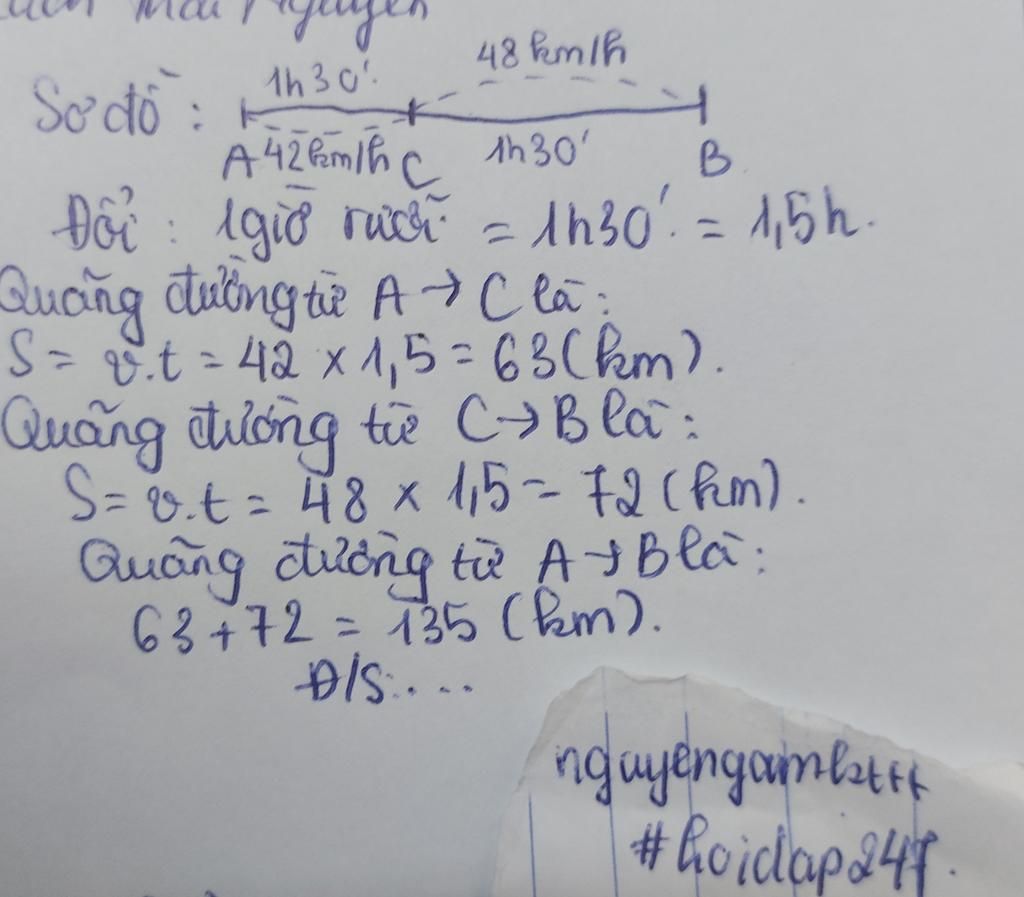 Mai Nguyen
1h30'
48km/h
Sơ đồ :
A 42km/h C
1h30'
B
Đổi : 1giờ rưỡi = 1h30' = 1,5h.
Quãng đường từ A → C là :
S = v.t = 42 x 1,5 = 63 (km).
Quãng đường từ C → B là :
S = v.t = 48 x 1,5 = 72 (km).
Quãng đường từ A → B là :
63 + 72 = 135 (km).
Đ/S: ....
#hoidap247.